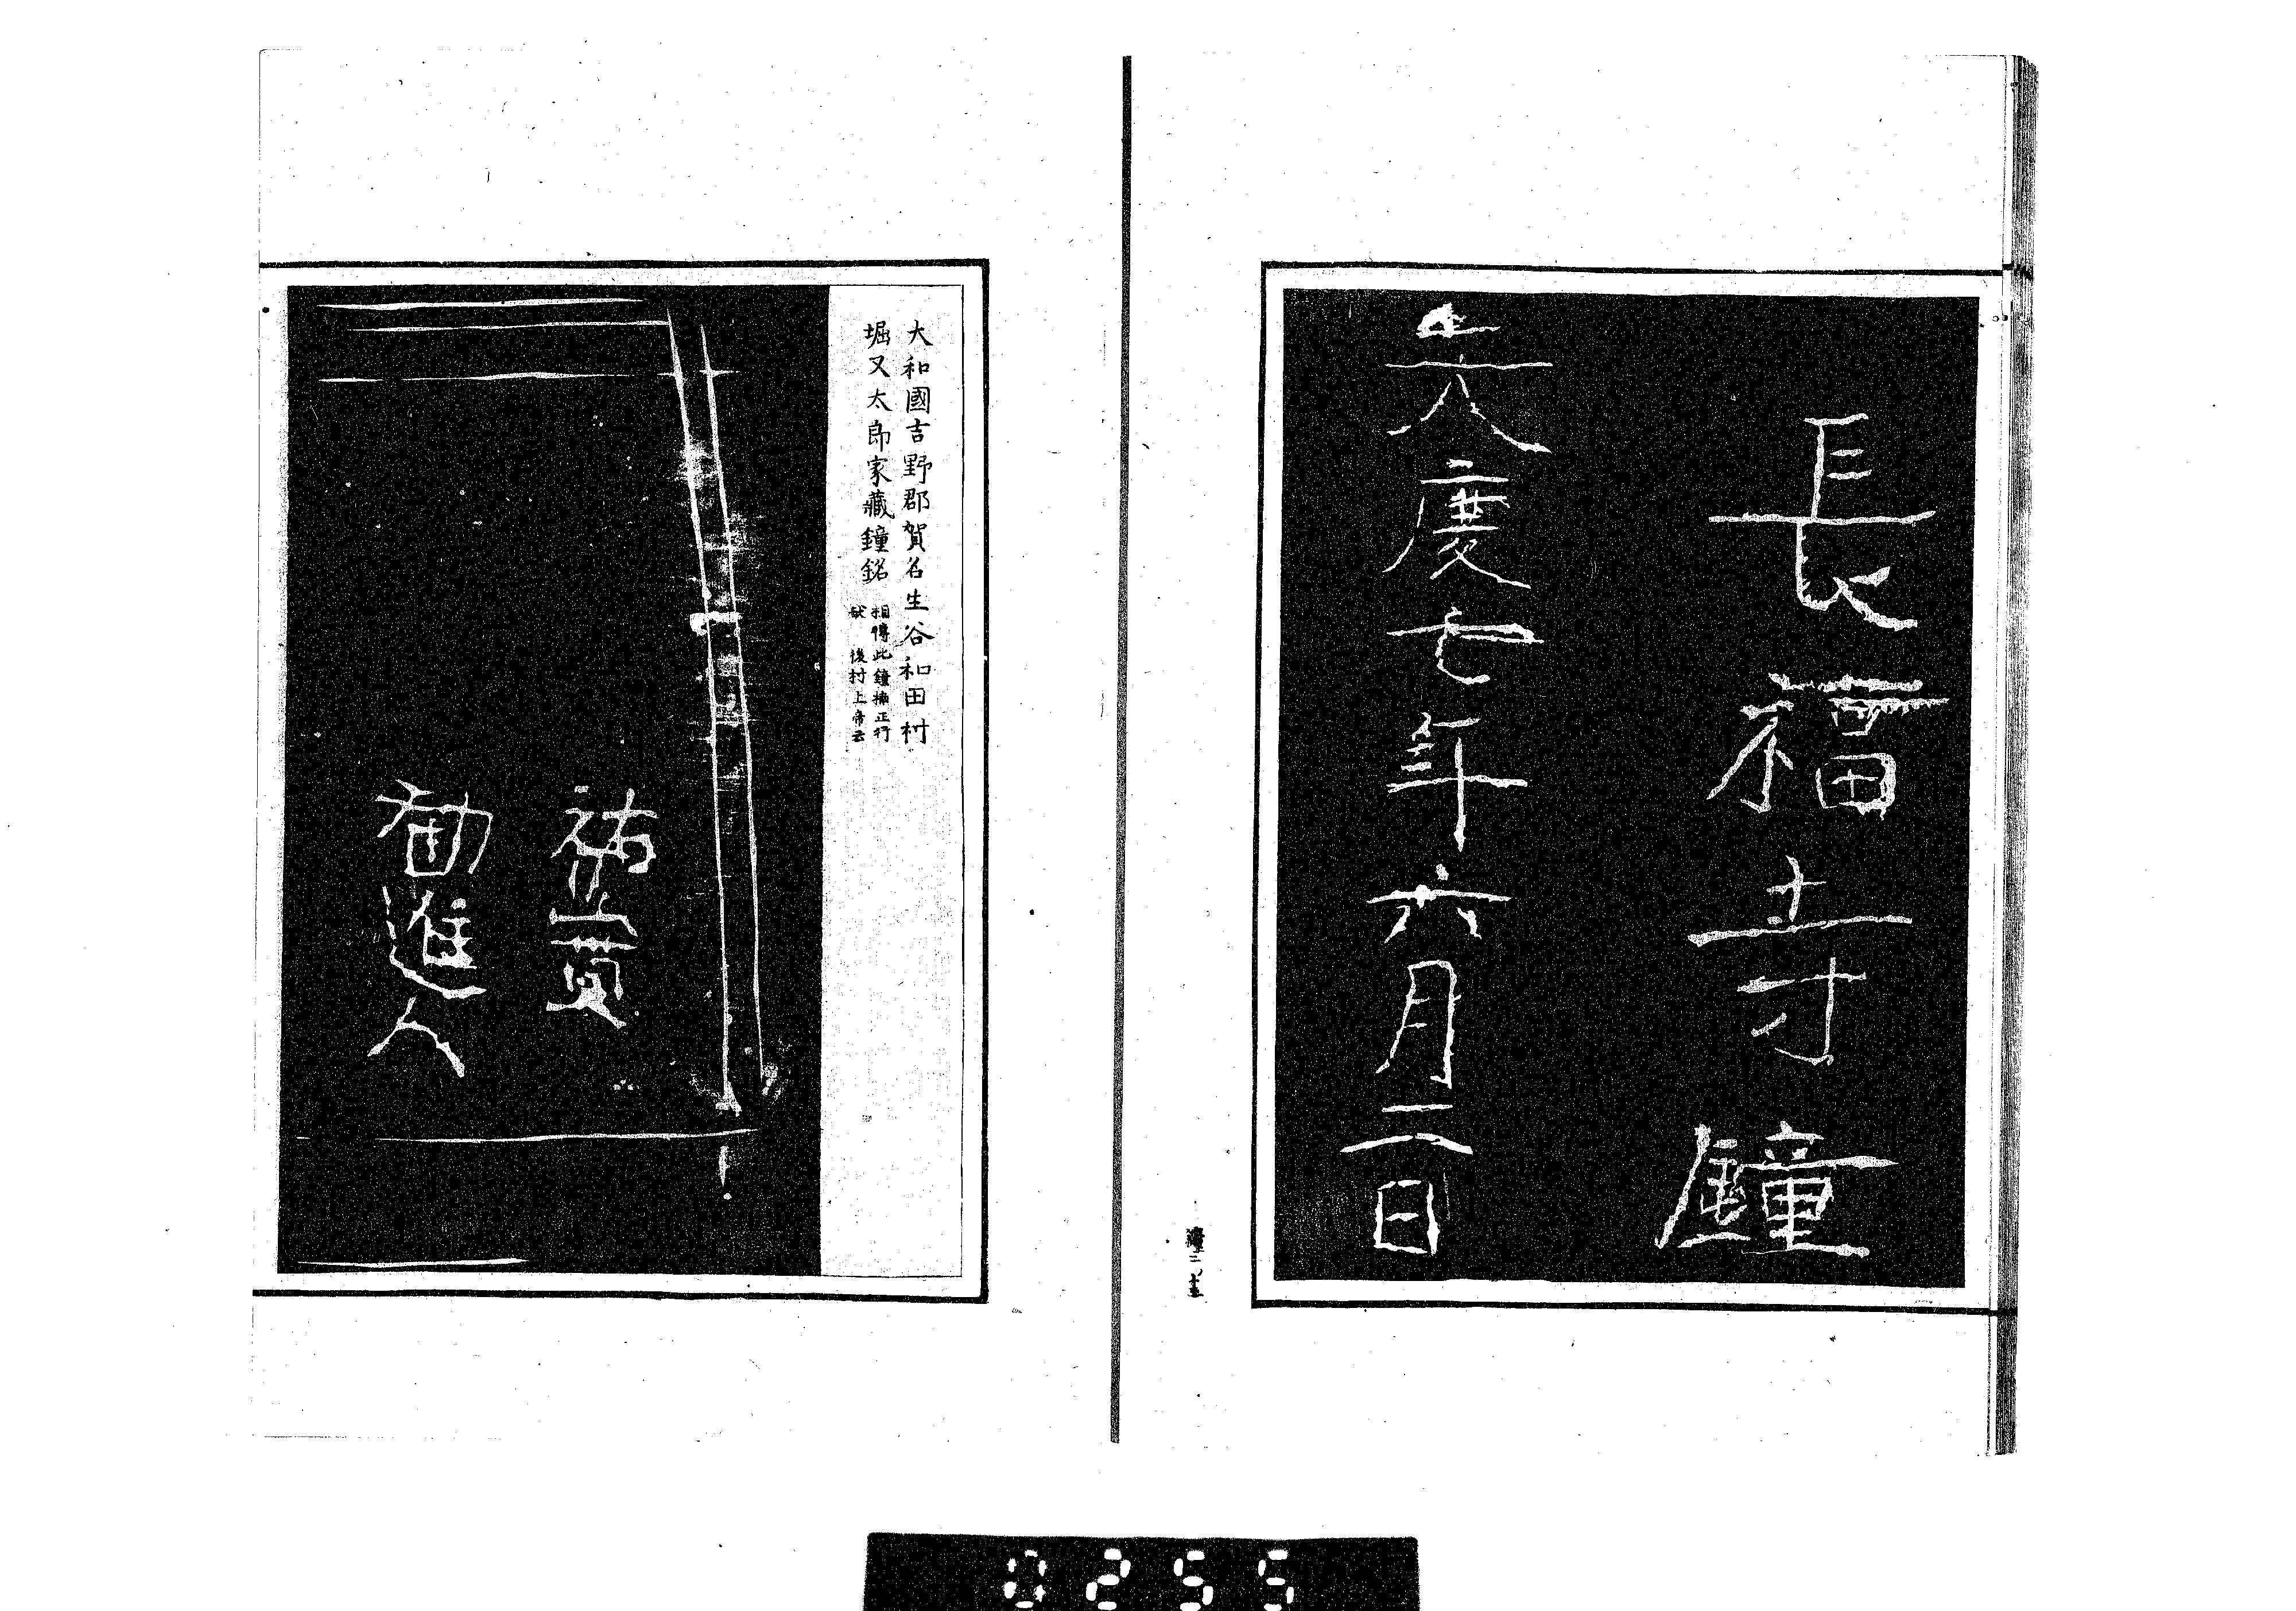 長福寺鐘
天慶七年六月二日
大和國吉野郡賀名生谷和田村
堀又太郎家藏鐘銘
相傳此鐘楠正行
献 後村上帝云
祐
勧進人
0255